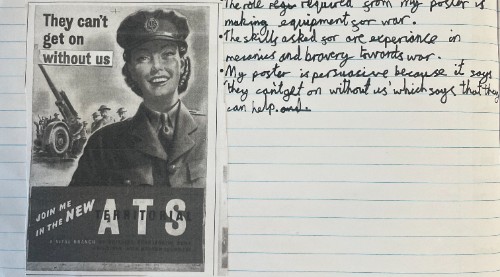 They can't
get on
without us
JOIN ME
IN THE NEW
ATS
TERRITORIAL
A VITAL BRANCH
The role required from my poster is
making equipment for war.
• The skills asked for are experience in
mecanics and bravery towards war.
• My poster is persuasive because it says
'they can't get on without us' which says that they
can help.